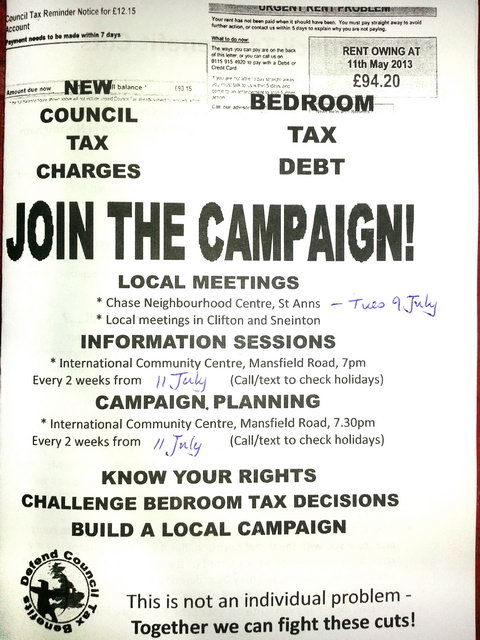 Council Tax Reminder Notice for £12.15
Account
Payment needs to be made within 7 days
Amount due now
ll balance
£93.15
URGENT RENT PROBLEM
Your rent has not been paid when it should have been. You must pay straight away to avoid
further action, or contact us within 5 days to explain why you are not paying.
What to do now:
The ways you can pay are on the back
of this letter, or you can call us on
0115 915 4920 to pay with a Debit or
Credit Card.
RENT OWING AT
11th May 2013
£94.20
NEW
COUNCIL
TAX
CHARGES
BEDROOM
TAX
DEBT
JOIN THE CAMPAIGN!
LOCAL MEETINGS
* Chase Neighbourhood Centre, St Anns – Tues 9 July
* Local meetings in Clifton and Sneinton
INFORMATION SESSIONS
* International Community Centre, Mansfield Road, 7pm
Every 2 weeks from 11 July (Call/text to check holidays)
CAMPAIGN PLANNING
* International Community Centre, Mansfield Road, 7.30pm
Every 2 weeks from 11 July (Call/text to check holidays)
KNOW YOUR RIGHTS
CHALLENGE BEDROOM TAX DECISIONS
BUILD A LOCAL CAMPAIGN
Defend Council Tax Benefits
This is not an individual problem -
Together we can fight these cuts!